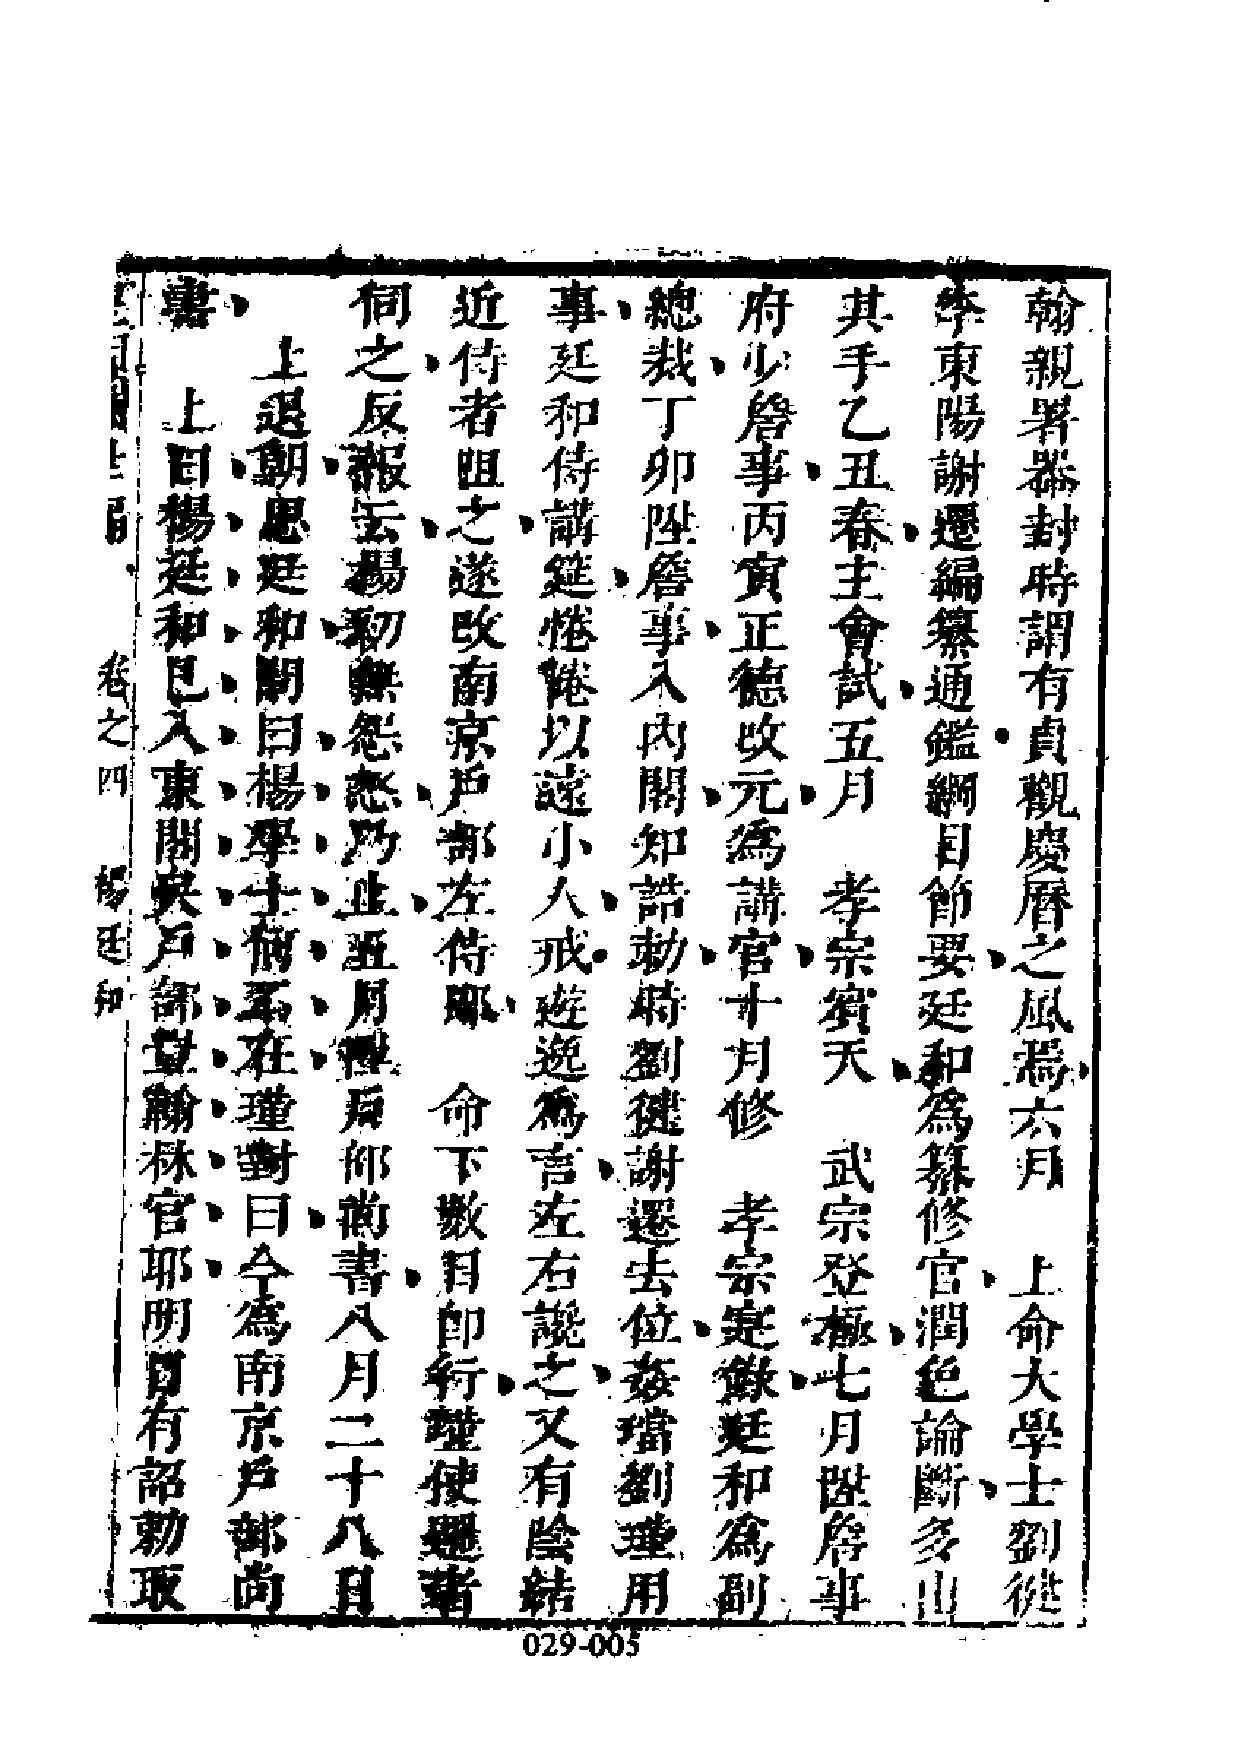 翰親署器封時謂有貞觀慶曆之風焉六月　上命大學士劉徤
李東陽謝遷編纂通鑑綱目節要廷和為纂修官潤色論斷多出
其手乙丑春主會試五月　孝宗賓天　武宗登極七月陞詹事
府少詹事丙寅正德改元為講官十月修　孝宗寔錄廷和為副
總裁丁卯陞詹事入內閣知誥勅時劉徤謝遷去位姦璫劉瑾用
事廷和侍講筵惓惓以遠小人戒遊逸為言左右讒之又有陰結
近侍者咀之遂改南京戶部左侍郎　命下數日卽行瑾使邏者
伺之反報云楊初無怨怒乃止五月陞戶部尚書八月二十八日
上退朝思廷和問曰楊學士何不在瑾對曰今為南京戶部尚
書　上曰楊廷和已入東閣矣戶部豈翰林官耶明日有詔勅取
卷之四　楊廷和
029-005